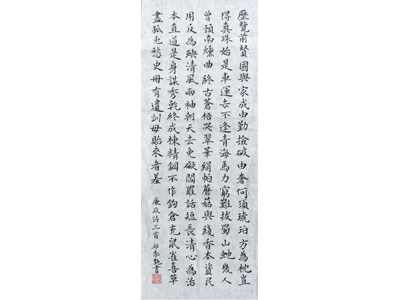 歷覽前賢國與家成由勤儉破由奢何須琥珀方為枕豈
得真珠始是車運去不逢青海馬力窮難拔蜀山蛇幾人
曾預南燻曲終古蒼梧哭翠華絹帕蘑菇與綫香本資民
用反為殃清風兩袖朝天去免礙閻羅話短長清心為治
本直道是身謀秀乾終成棟精鋼不作鉤倉充鼠雀喜草
盡狐兔愁史冊有遺訓毋貽來者羞
廉政詩三首 書